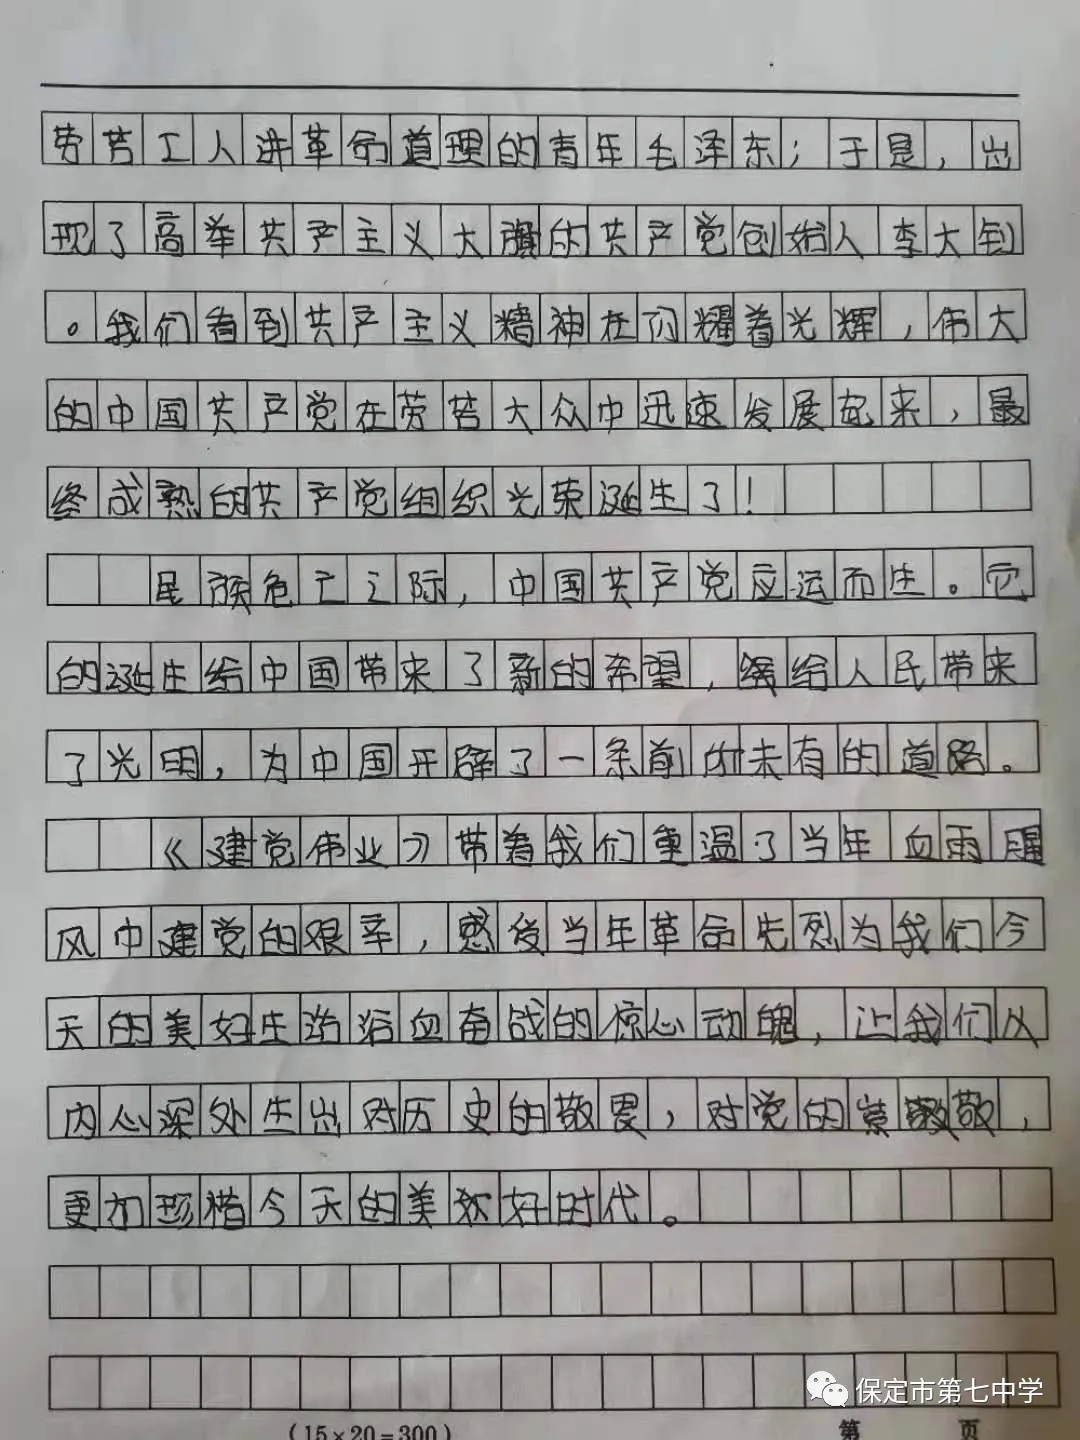 劳苦工人讲革命道理的青年毛泽东；于是，出
现了高举共产主义大旗的共产党创始人李大钊
。我们看到共产主义精神在闪耀着光辉，伟大
的中国共产党在劳苦大众中迅速发展起来，最
终成熟的共产党组织光荣诞生了！
民族危亡之际，中国共产党应运而生。它
的诞生给中国带来了新的希望，给人民带来
了光明，为中国开辟了一条前所未有的道路。
《建党伟业》带着我们重温了当年血雨腥
风中建党的艰辛，感受当年革命先烈为我们今
天的美好生活浴血奋战的惊心动魄，让我们从
内心深处生出对历史的敬畏，对党的崇敬，
更加珍惜今天的美好时代。
保定市第七中学
(15×20=300)
第 页